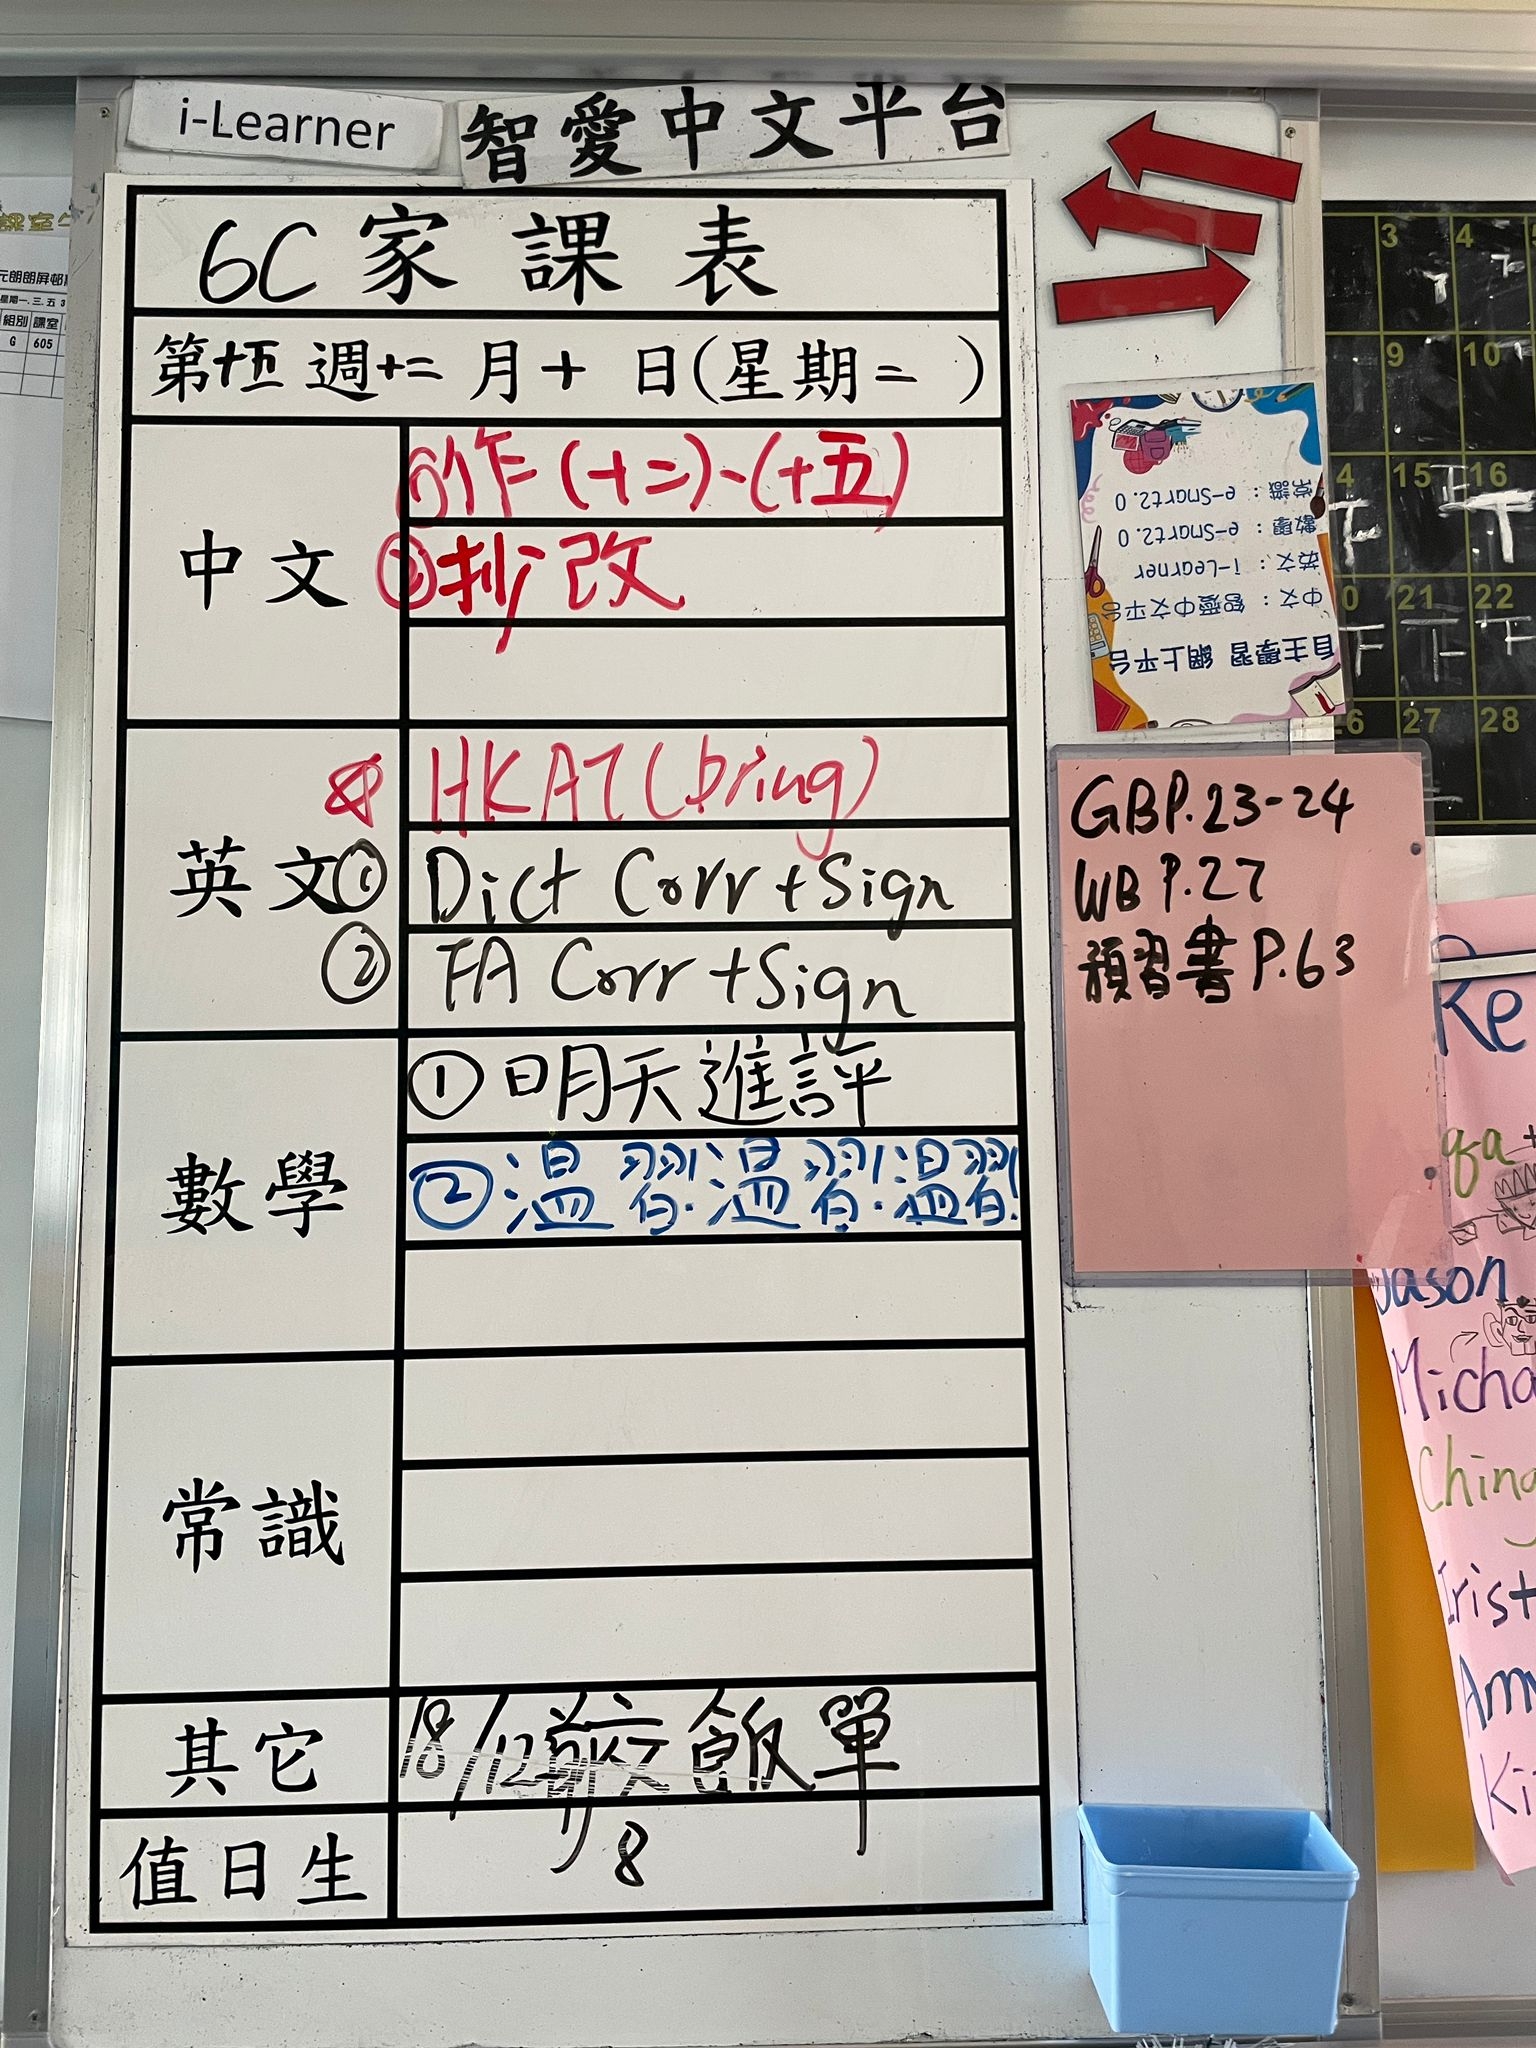 i-Learner 智愛中文平台
6C家課表
第十五週十二月十日(星期二)
中文
①作(十二)-(十五)
②抄改
英文
HKAT(bring)
① Dict Corr+Sign
② FA Corr+Sign
數學
①明天進評
②溫習!溫習!溫習!
常識
其它
18/12前交飯單
值日生
8
自主學習 網上平台
中文：智愛中文平台
英文：i-Learner
數學：e-Smart2.0
常識：e-Smart2.0
GB P.23-24
WB P.27
預習書 P.63
3 4
9 10
15 16
21 22
27 28
組別 課室
G 605
Re
Jason